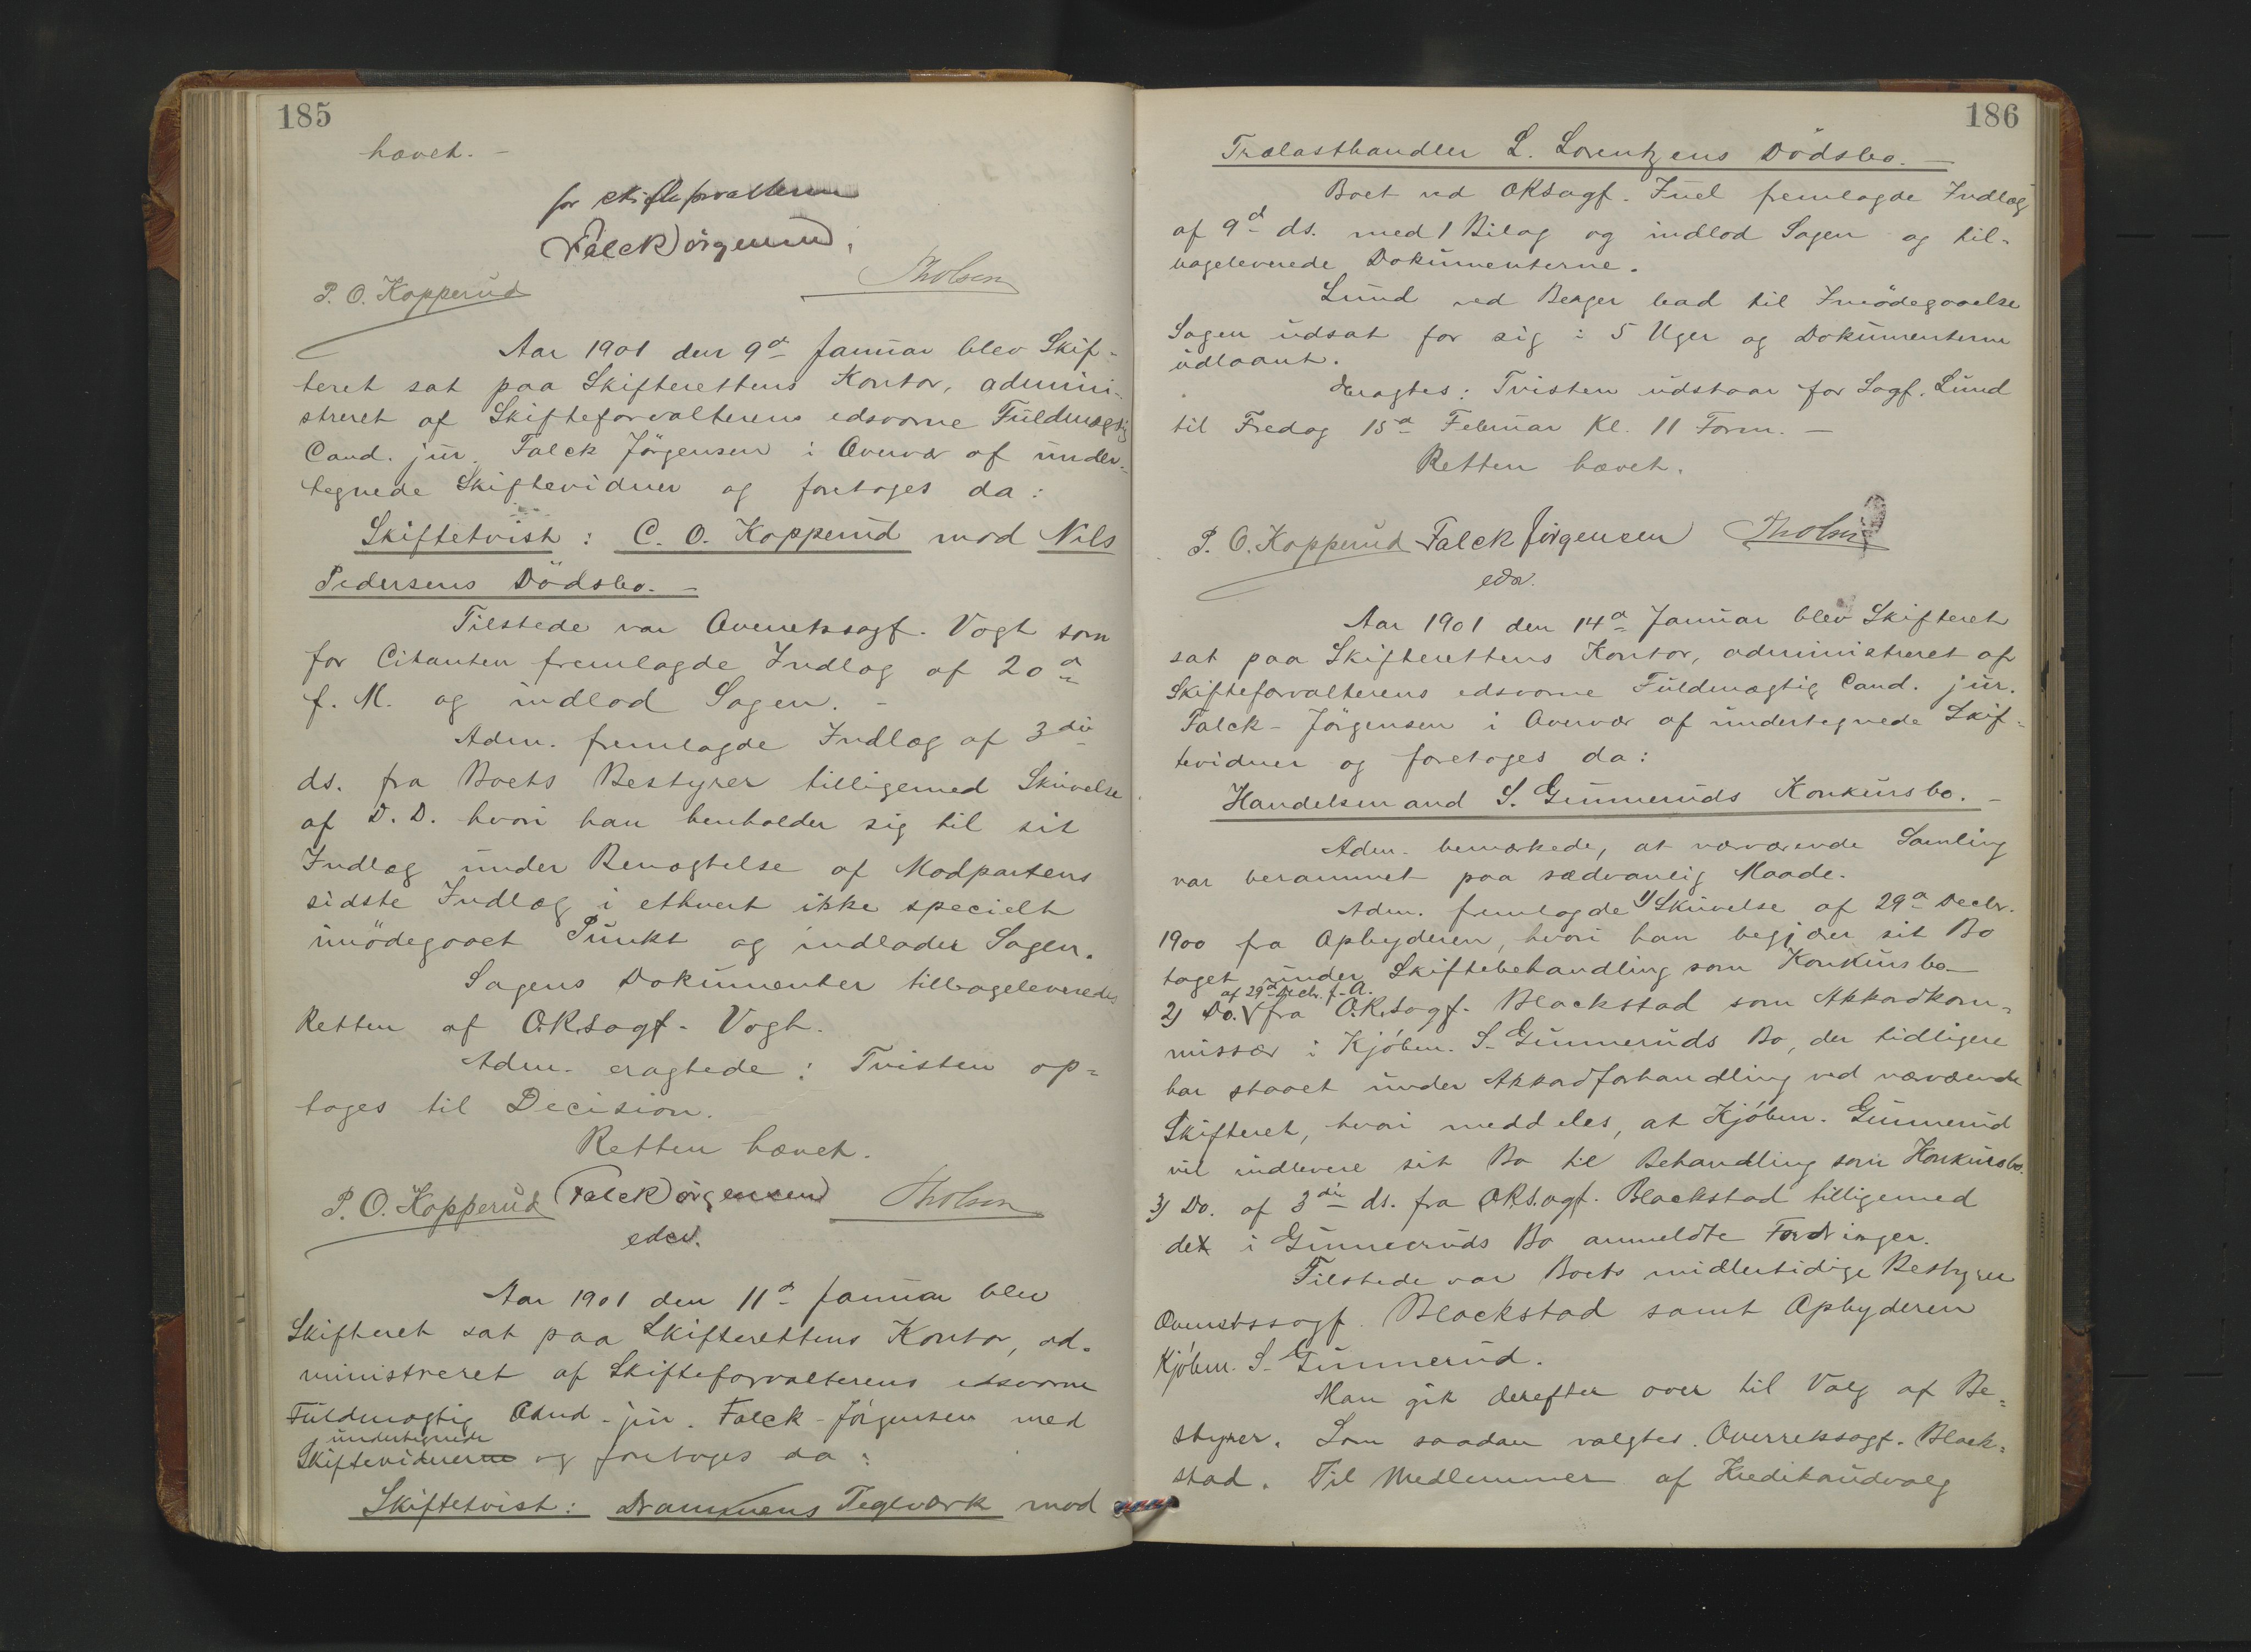 185
hævet. –
for skifteforvalteren
Falck Jörgensen.
P. O. Kopperud
Tholsen
Aar 1901 den 9d Januar blev Skif-
teret sat paa Skifterettens Kontor, admini-
streret af Skifteforvalterens edsvorne Fuldmægtig
Cand. jur. Falck Jörgensen i Overvær af under-
tegnede Skiftevidner og foretoges da:
Skiftetvist: C. O. Kopperud mod Nils
Pedersens Dödsbo. –
Tilstede var Overretssagf. Vogt som
for Citanten fremlagde Indlæg af 20d
f. M. og indlod Sagen. –
Adm. fremlagde Indlæg af 3die
ds. fra Boets Bestyrer tilligemed Skrivelse
af D. D. hvori han henholder sig til sit
Indlæg under Benægtelse af Modpartens
sidste Indlæg i ethvert ikke specielt
imödegaaet Punkt og indlader Sagen.
Sagens Dokumenter tilbageleveredes
Retten af O.R.sagf. Vogt.
Adm. eragtede: Tvisten op=
tages til Decision.
Retten hævet.
P. O. Kopperud Falck Jörgensen Tholsen
edsv.
Aar 1901 den 11d Januar blev
Skifteret sat paa Skifterettens Kontor, ad-
ministreret af Skifteforvalterens edsvorne
Fuldmægtig Cand. jur. Falck-Jörgensen med
undertegnede
Skiftevidnerne og foretoges da:
Skiftetvist: Drammens Teglværk mod
186
Trælasthandler L. Lorentzens Dödsbo. –
Boet ved ORsagf. Juel fremlagde Indlæg
af 9d ds. med 1 Bilag og indlod Sagen og til-
bageleverede Dokumenterne.
Lund ved Berger bad til Imödegaaelse
Sagen udsat for sig i 5 Uger og Dokumenterne
udlaant.
Eragtes: Tvisten udstaar for Sagf. Lund
til Fredag 15d Februar Kl. 11 Form. –
Retten hævet.
P. O. Kopperud Falck Jörgensen Tholsen
edsv.
Aar 1901 den 14d Januar blev Skifteret
sat paa Skifterettens Kontor, administreret af
Skifteforvalterens edsvorne Fuldmægtig Cand. jur.
Falck-Jörgensen i Overvær af undertegnede Skif-
tevidner og foretoges da:
Handelsmand S. Gunneruds Konkursbo. –
Adm. bemærkede, at nærværende Samling
var berammet paa sædvanlig Maade.
Adm. fremlagde 1) Skrivelse af 29d Decbr.
1900 fra Opbyderen, hvori han begjærer sit Bo
taget under Skiftebehandling som Konkursbo –
af 29d Decbr. f. A.
2) Do. fra O.R.sagf. Blackstad som Akkordkom-
missær i Kjöbm. S. Gunneruds Bo, der tidligere
har staaet under Akkordforhandling ved nærværende
Skifteret, hvori meddeles, at Kjöbm. Gunnerud
vil indlevere sit Bo til Behandling som Konkursbo.
3) Do. af 3die ds. fra ORsagf. Blackstad tilligemed
de i Gunneruds Bo anmeldte Fordringer.
Tilstede var Boets midlertidige Bestyrer
Overretssagf. Blackstad samt Opbyderen
Kjöbm. S. Gunnerud.
Man gik derefter over til Valg af Be-
styrer. Som saadan valgtes Overretssagf. Black-
stad. Til Medlemmer af Kreditudvalg